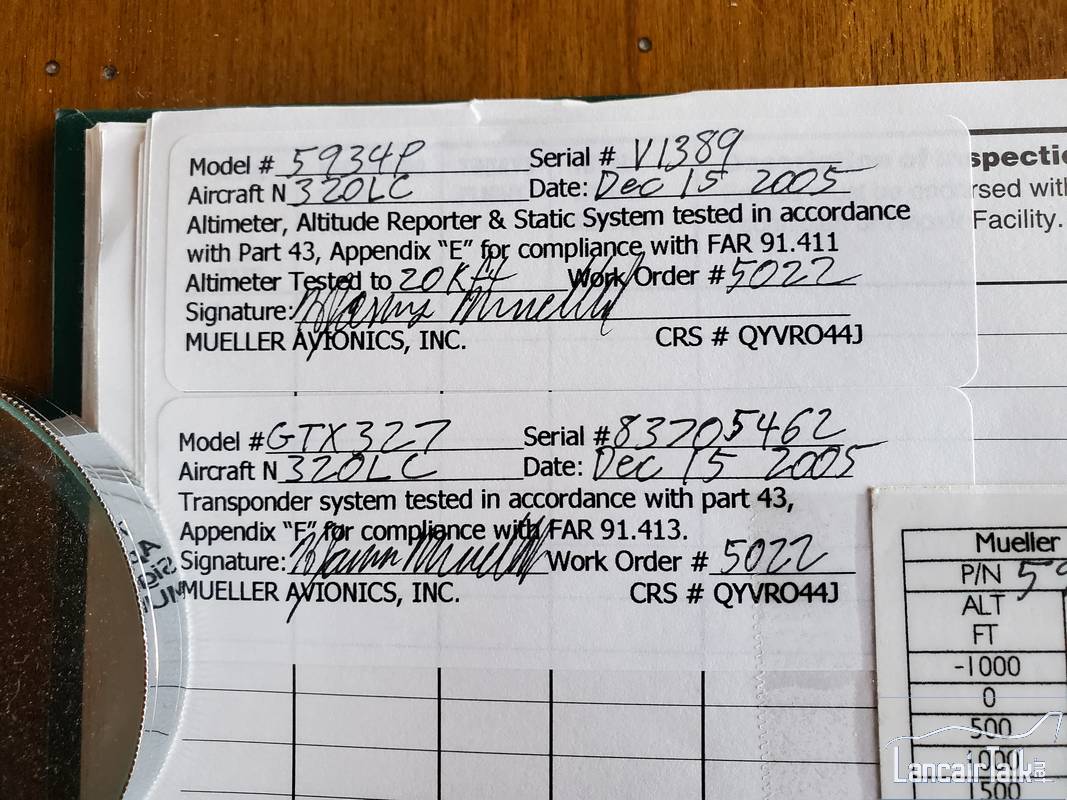 Model # 5934P Serial # V1389
Aircraft N 320LC Date: Dec 15 2005
Altimeter, Altitude Reporter & Static System tested in accordance
with Part 43, Appendix “E” for compliance with FAR 91.411
Altimeter Tested to 20K ft Work Order # 5022
Signature: Mueller
MUELLER AVIONICS, INC. CRS # QYVRO44J
Model # GTX327 Serial # 83705462
Aircraft N 320LC Date: Dec 15 2005
Transponder system tested in accordance with part 43,
Appendix “F” for compliance with FAR 91.413.
Signature: Mueller Work Order # 5022
MUELLER AVIONICS, INC. CRS # QYVRO44J
spectio
rsed with
Facility.
Mueller
P/N 59
ALT
FT
-1000
0
500
1000
1500
LancairTalk